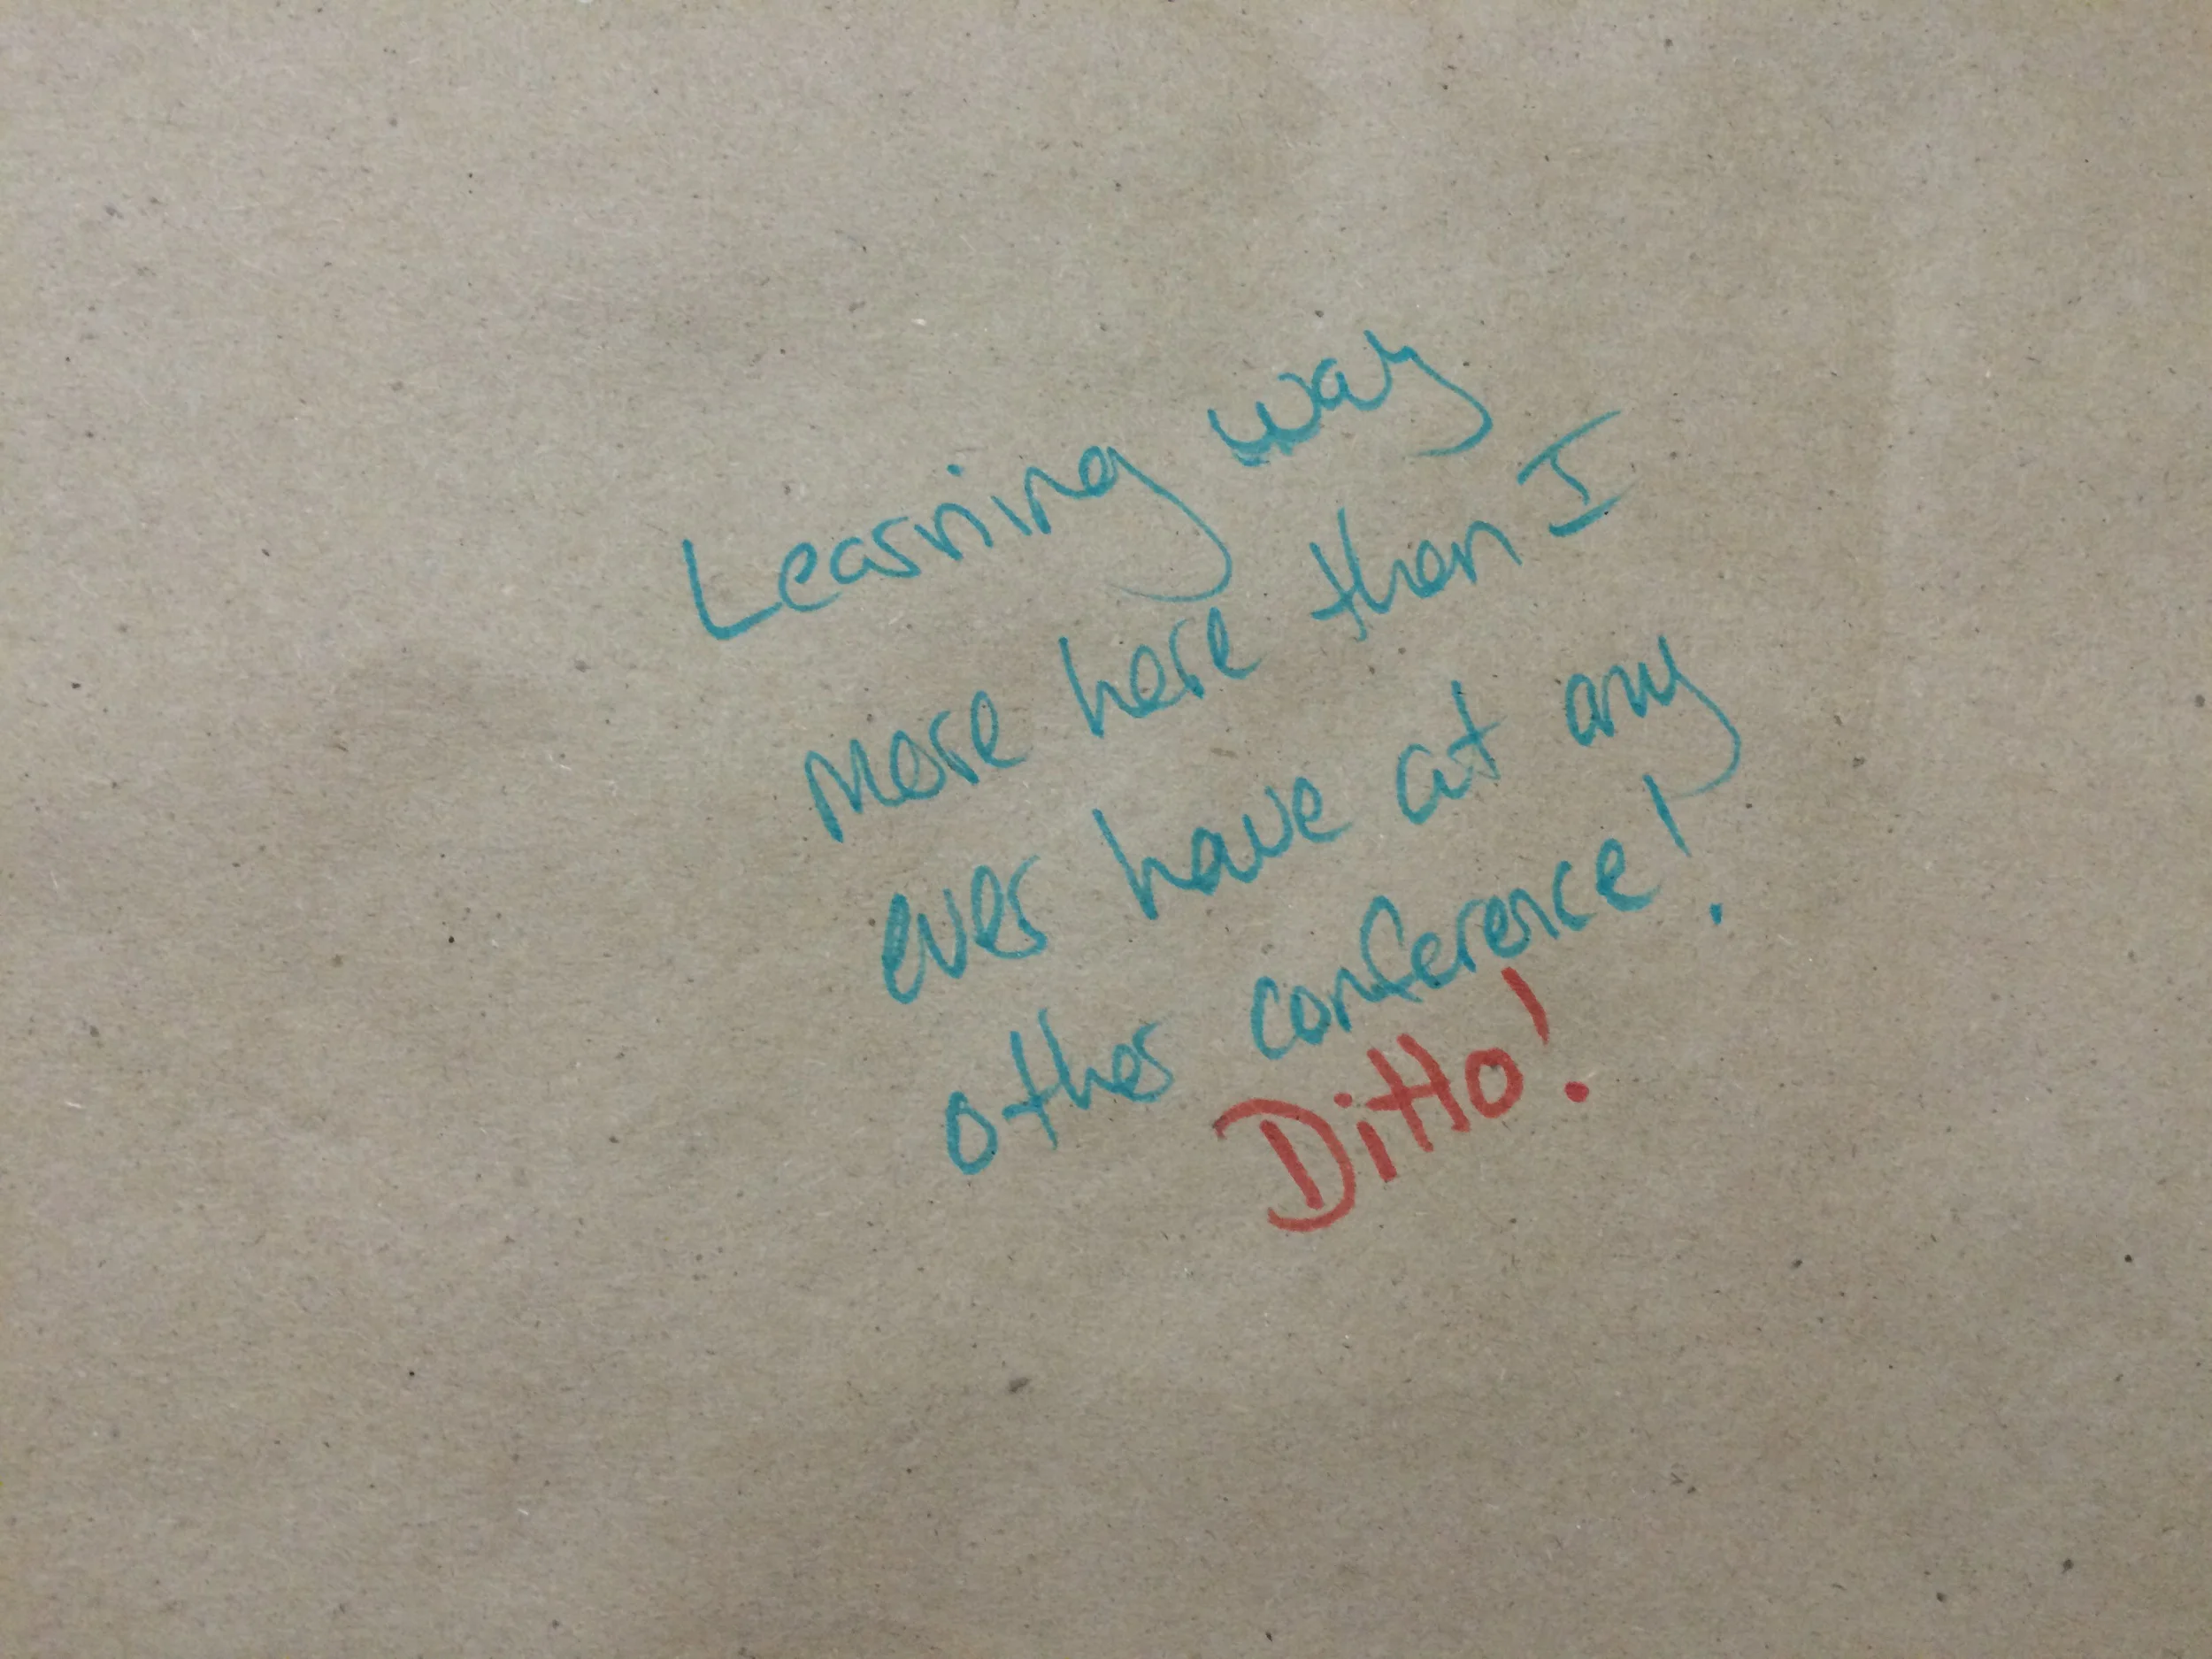 Learning way
more here than I
ever have at any
other conference!
Ditto!